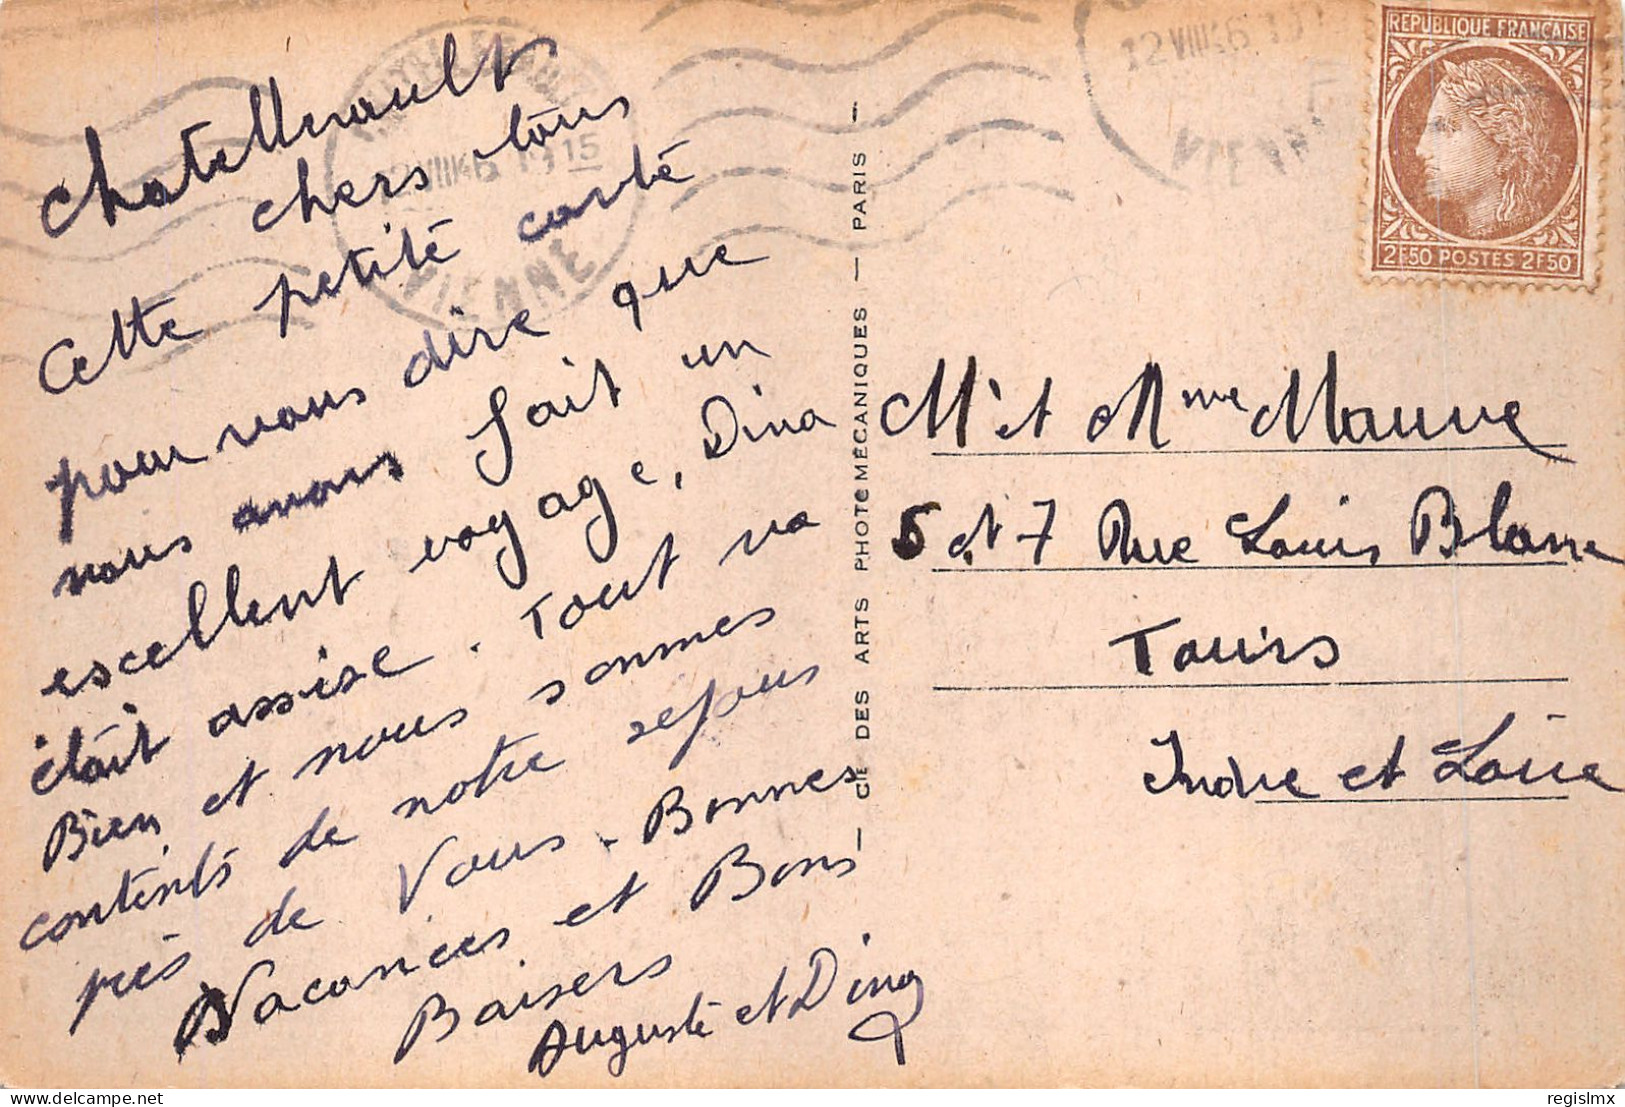 Chatellrault
chers tous
Cette petite carte
pour vous dire que
nous avons fait un
escellent voyage, Dina
était assise. Tout va
Bien et nous sommes
contents de notre sejour
près de Vous. Bonnes
Vacances et Bons
Baisers
Auguste et Dina
CIE DES ARTS PHOTOMÉCANIQUES — PARIS —
VIENNE
12 VIII 46
REPUBLIQUE FRANÇAISE
2F50 POSTES 2F50
Mr et Mme Mauve
5 et 7 Rue Louis Blanc
Tours
Indre et Loire
delcampe.net
regislmx